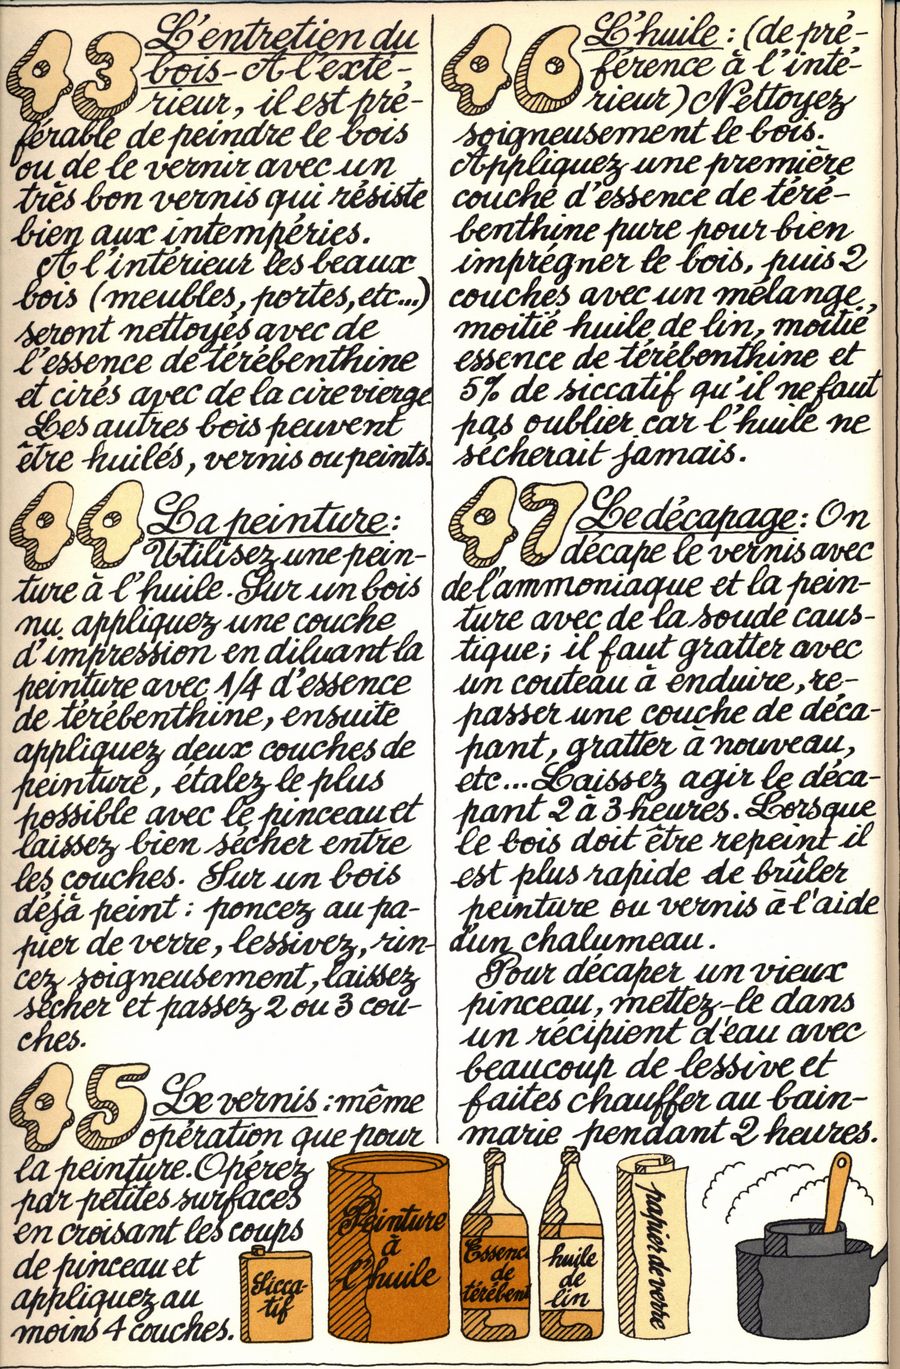 43 L'entretien du
bois - A l'exté-
rieur, il est pré-
férable de peindre le bois
ou de le vernir avec un
très bon vernis qui résiste
bien aux intempéries.
A l'intérieur les beaux
bois (meubles, portes, etc...)
seront nettoyés avec de
l'essence de térébenthine
et cirés avec de la cire vierge
Les autres bois peuvent
être huilés, vernis ou peints.
44 La peinture :
Utilisez une pein-
ture à l'huile. Sur un bois
nu, appliquez une couche
d'impression en diluant la
peinture avec 1/4 d'essence
de térébenthine, ensuite
appliquez deux couches de
peinture, étalez le plus
possible avec le pinceau et
laissez bien sécher entre
les couches. Sur un bois
déjà peint : poncez au pa-
pier de verre, lessivez, rin-
cez soigneusement, laissez
sécher et passez 2 ou 3 cou-
ches.
45 Le vernis : même
opération que pour
la peinture. Opérez
par petites surfaces
en croisant les coups
de pinceau et
appliquez au
moins 4 couches.
46 L'huile : (de pré-
férence à l'inté-
rieur) Nettoyez
soigneusement le bois.
Appliquez une première
couche d'essence de téré-
benthine pure pour bien
imprégner le bois, puis 2
couches avec un mélange,
moitié huile de lin, moitié
essence de térébenthine et
5% de siccatif qu'il ne faut
pas oublier car l'huile ne
sécherait jamais.
47 Le décapage : On
décape le vernis avec
de l'ammoniaque et la pein-
ture avec de la soude caus-
tique ; il faut gratter avec
un couteau à enduire, re-
passer une couche de déca-
pant, gratter à nouveau,
etc... Laissez agir le déca-
pant 2 à 3 heures. Lorsque
le bois doit être repeint il
est plus rapide de brûler
peinture ou vernis à l'aide
d'un chalumeau.
Pour décaper un vieux
pinceau, mettez-le dans
un récipient d'eau avec
beaucoup de lessive et
faites chauffer au bain-
marie pendant 2 heures.
Sicca-
tif
Peinture
à
l'huile
Essenc
de
térébent
huile
de
lin
papier de verre